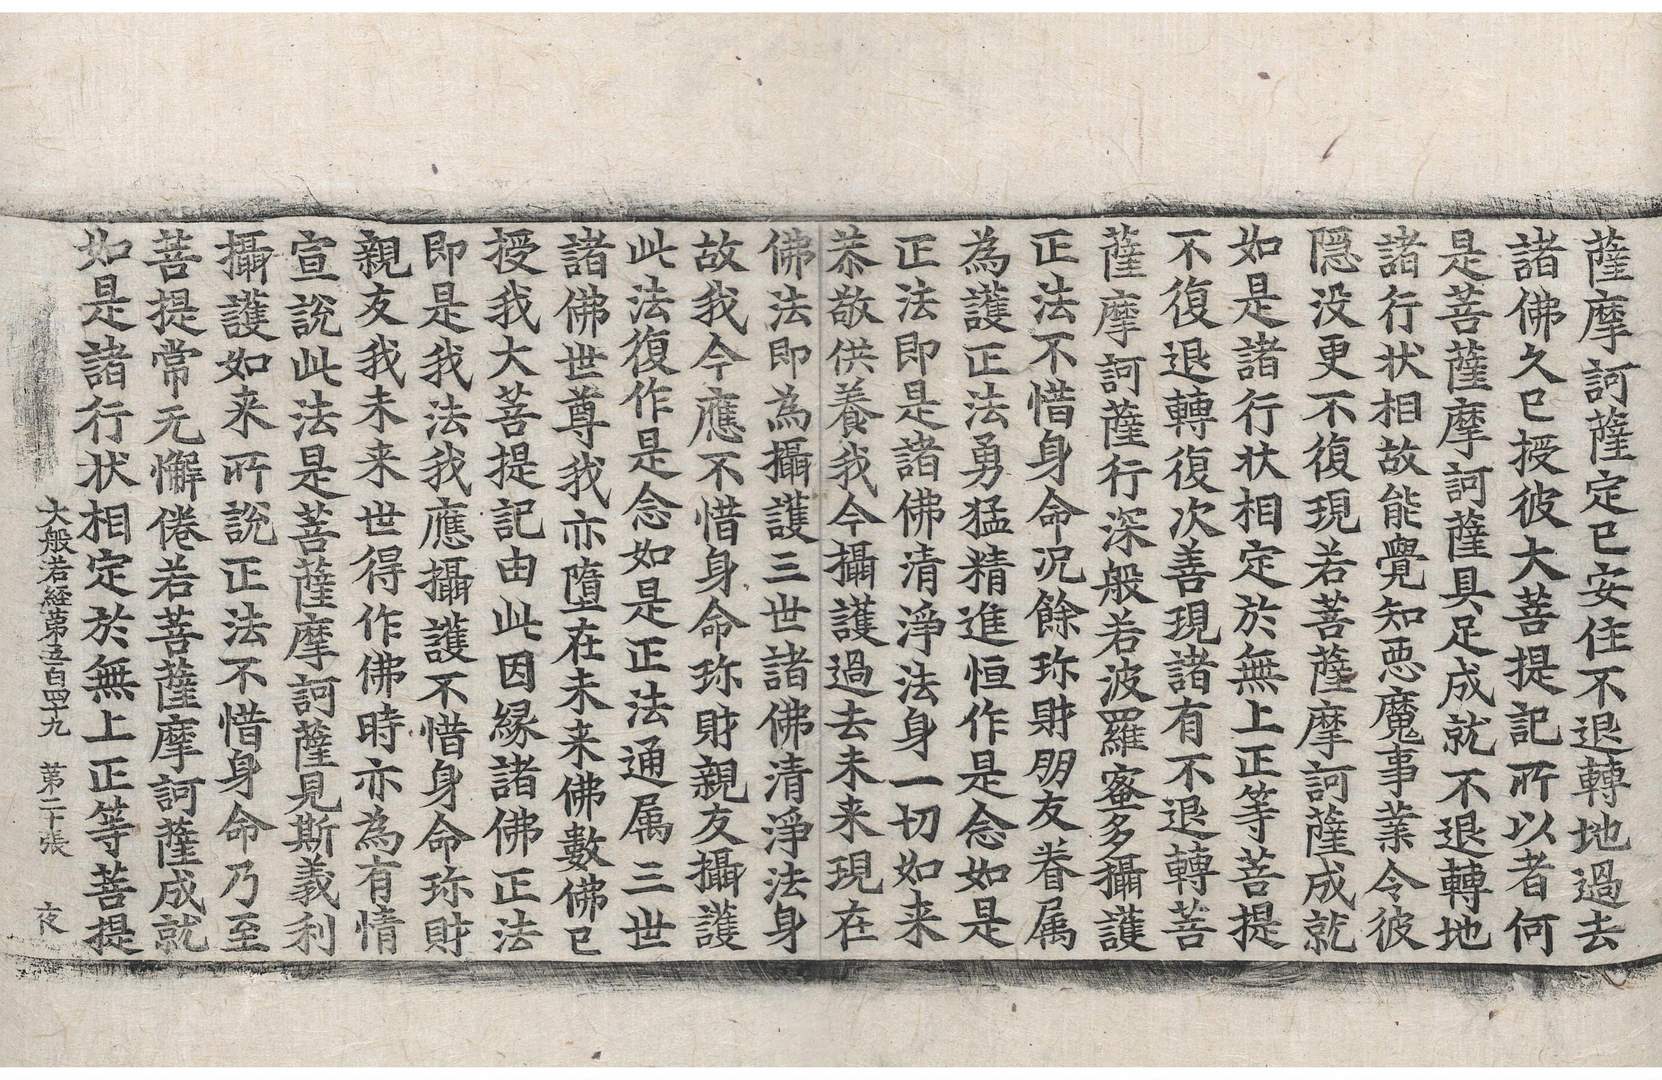 薩摩訶薩定已安住不退轉地過去
諸佛久已授彼大菩提記所以者何
是菩薩摩訶薩具足成就不退轉地
諸行状相故能覺知惡魔事業令彼
隱没更不復現若菩薩摩訶薩成就
如是諸行状相定於無上正等菩提
不復退轉復次善現諸有不退轉菩
薩摩訶薩行深般若波羅蜜多攝護
正法不惜身命况餘珎財朋友眷属
為護正法勇猛精進恒作是念如是
正法即是諸佛清淨法身一切如来
恭敬供養我今攝護過去未来現在
佛法即為攝護三世諸佛清淨法身
故我今應不惜身命珎財親友攝護
此法復作是念如是正法通属三世
諸佛世尊我亦墮在未来佛數佛已
授我大菩提記由此因縁諸佛正法
即是我法我應攝護不惜身命珎財
親友我未来世得作佛時亦為有情
宣說此法是菩薩摩訶薩見斯義利
攝護如来所說正法不惜身命乃至
菩提常无懈倦若菩薩摩訶薩成就
如是諸行状相定於無上正等菩提
大般若経第五百四十九 第二十張 夜